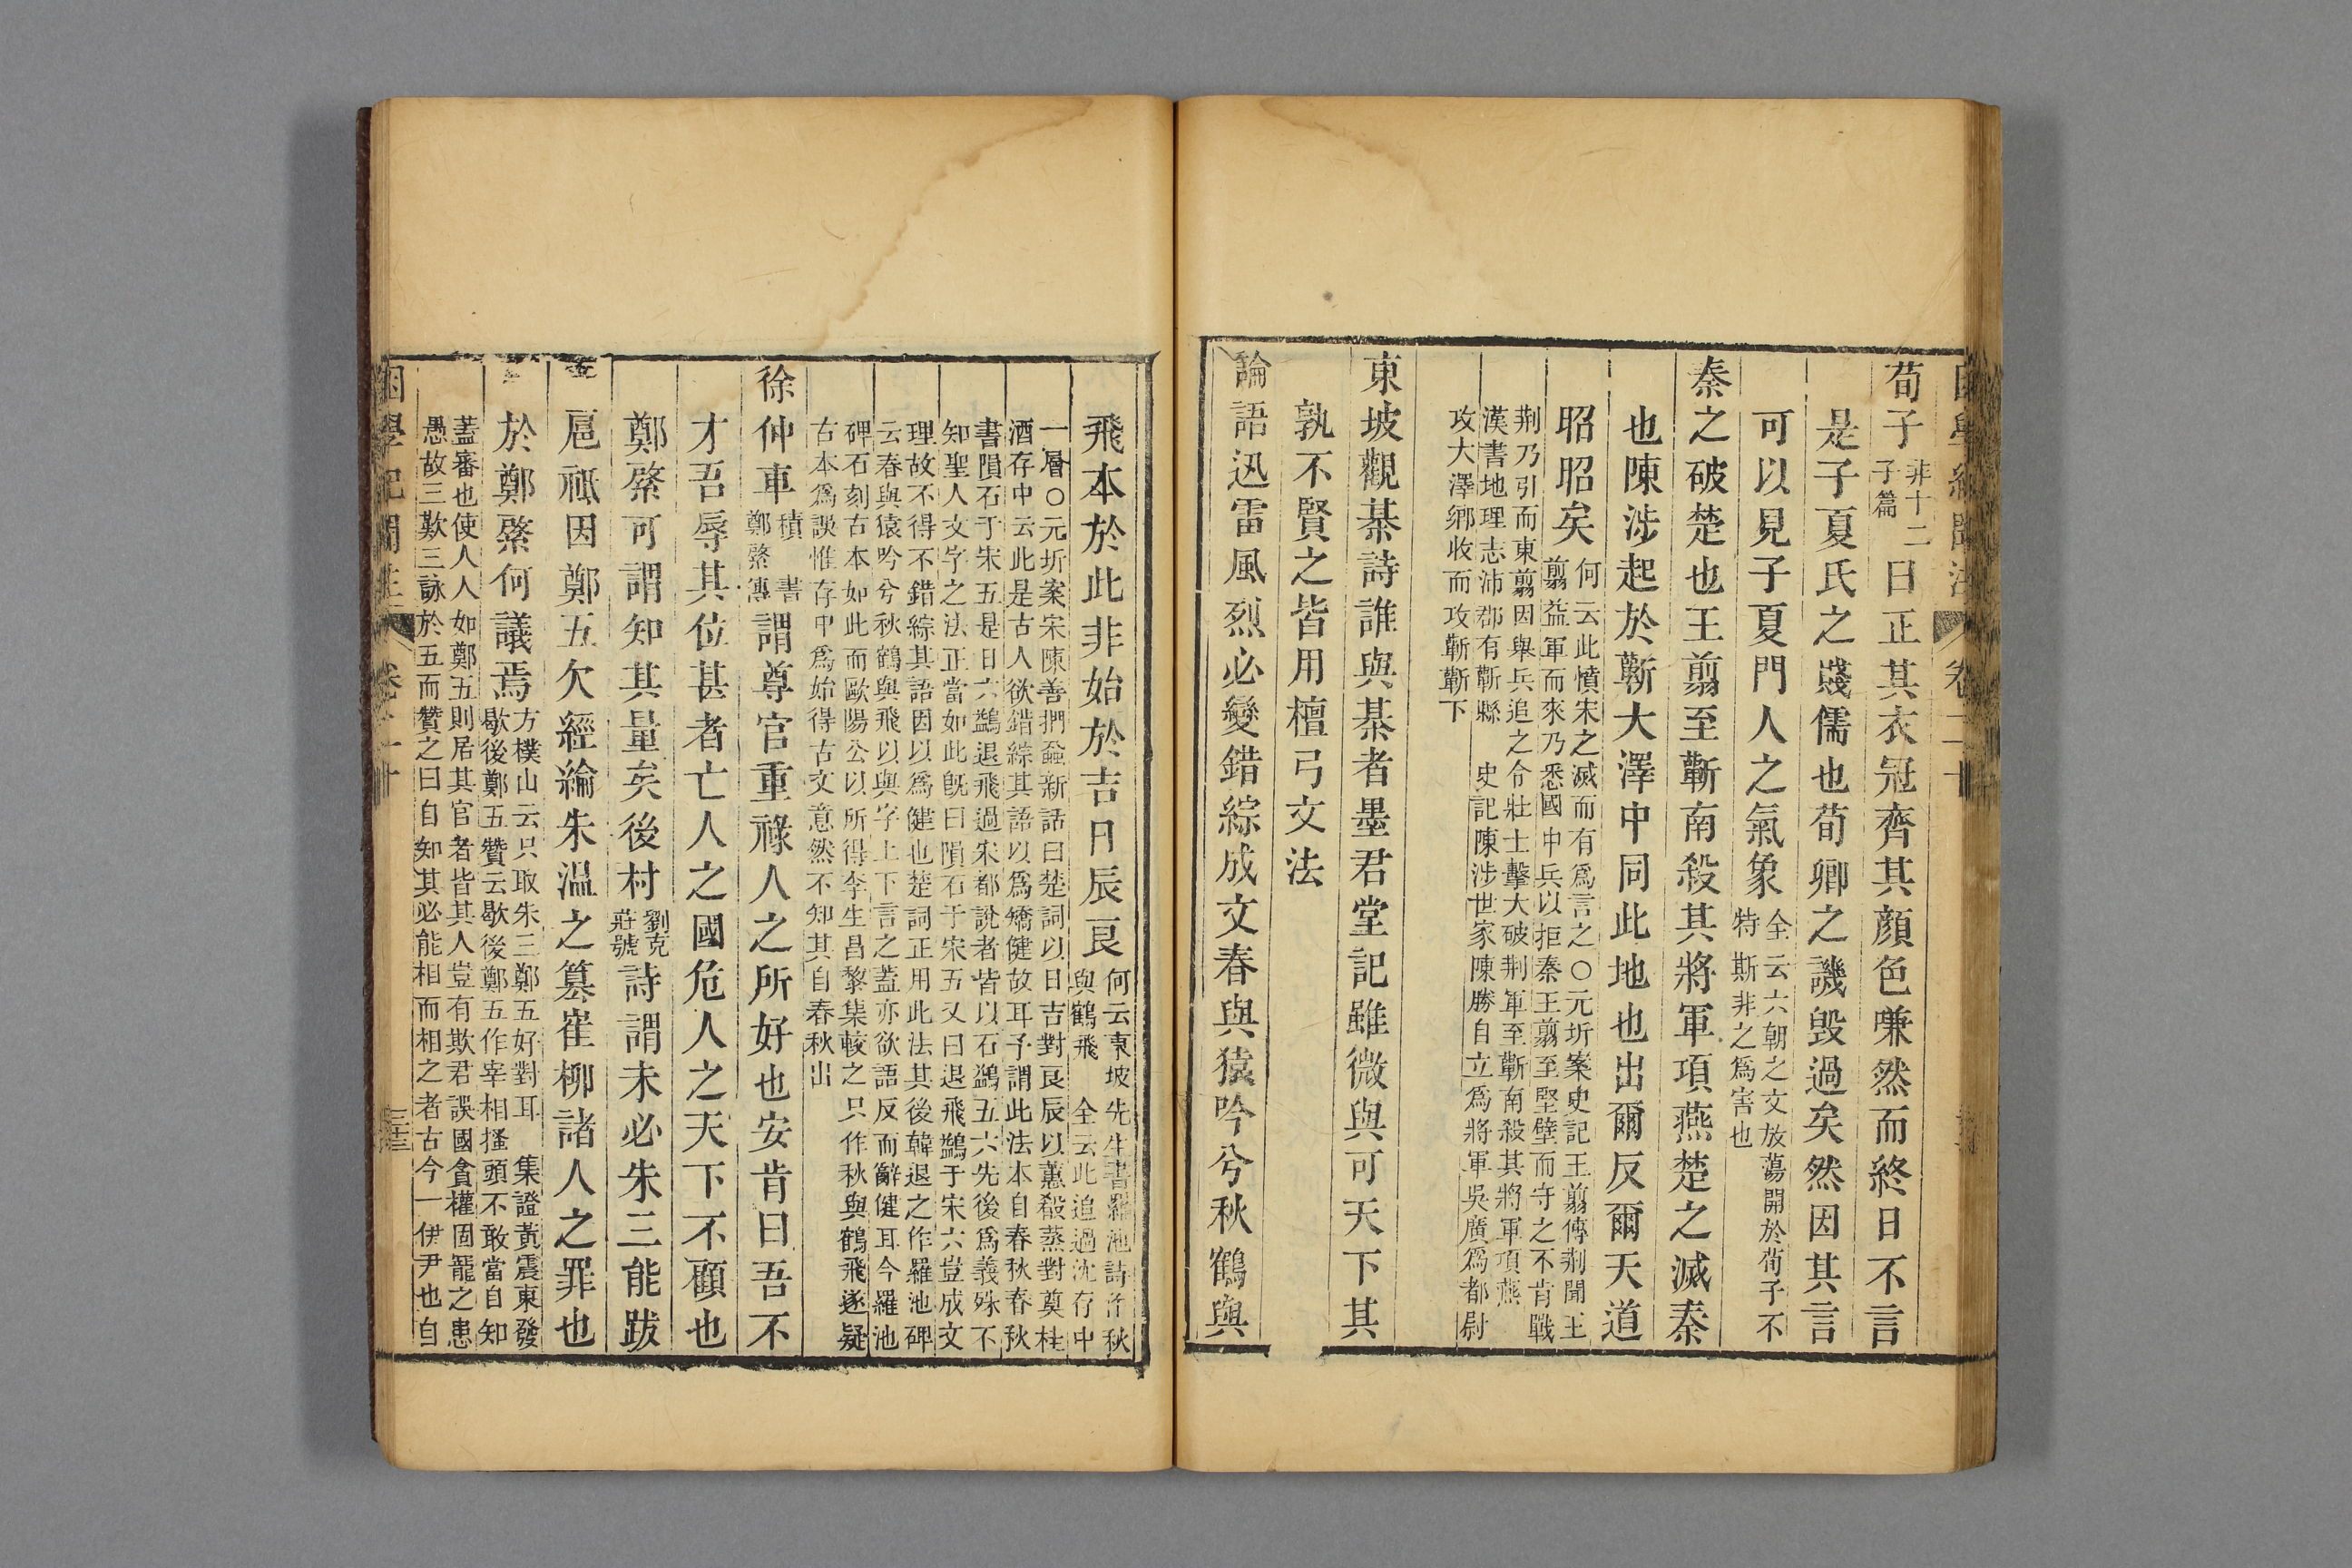 荀子非十二子篇曰正其衣冠齊其顏色嗛然而終日不言
是子夏氏之賤儒也荀卿之譏毀過矣然因其言
可以見子夏門人之氣象全云六朝之文放蕩開於荀子不
特斯非之爲害也
秦之破楚也王翦至蘄南殺其將軍項燕楚之滅秦
也陳涉起於蘄大澤中同此地也出爾反爾天道
昭昭矣何云此憤宋之滅而有爲言之○元圻案史記王翦傳荆聞王
翦益軍而來乃悉國中兵以拒秦王翦至堅壁而守之不肯戰
荆乃引而東翦因舉兵追之令壯士擊大破荆軍至蘄南殺其將軍項燕
漢書地理志沛郡有蘄縣 史記陳涉世家陳勝自立爲將軍吳廣爲都尉
攻大澤鄉收而攻蘄蘄下
東坡觀棊詩誰與棊者墨君堂記雖微與可天下其
孰不賢之皆用檀弓文法
論語迅雷風烈必變錯綜成文春與猿吟兮秋鶴與
飛本於此非始於吉日辰良何云東坡先生書羅池詩作秋
與鶴飛 全云此追過沈存中
一層○元圻案宋陳善捫蝨新話曰楚詞以日吉對良辰以蕙殽蒸對奠桂
酒存中云此是古人欲錯綜其語以爲矯健故耳予謂此法本自春秋春秋
書隕石于宋五是日六鷁退飛過宋都說者皆以石鷁五六先後爲義殊不
知聖人文字之法正當如此旣曰隕石于宋五又曰退飛鷁于宋六豈成文
理故不得不錯綜其語因以爲健也楚詞正用此法其後韓退之作羅池碑
云春與猿吟兮秋鶴與飛以與字上下言之蓋亦欲語反而辭健耳今羅池
碑石刻古本如此而歐陽公以所得李生昌黎集較之只作秋與鶴飛遂疑
古本爲誤惟存中爲始得古文意然不知其自春秋出
徐仲車積 書
鄭綮傳謂尊官重祿人之所好也安肯曰吾不
才吾辱其位甚者亡人之國危人之天下不顧也
鄭綮可謂知其量矣後村劉克
莊號詩謂未必朱三能跋
扈祗因鄭五欠經綸朱温之篡崔柳諸人之罪也
於鄭綮何議焉方樸山云只取朱三鄭五好對耳 集證黃震東發
歇後鄭五贊云歇後鄭五作宰相搔頭不敢當自知
蓋審也使人人如鄭五則居其官者皆其人豈有欺君誤國貪權固寵之患
愚故三歎三詠於五而贊之曰自知其必能相而相之者古今一伊尹也自
困學紀聞注 卷二十